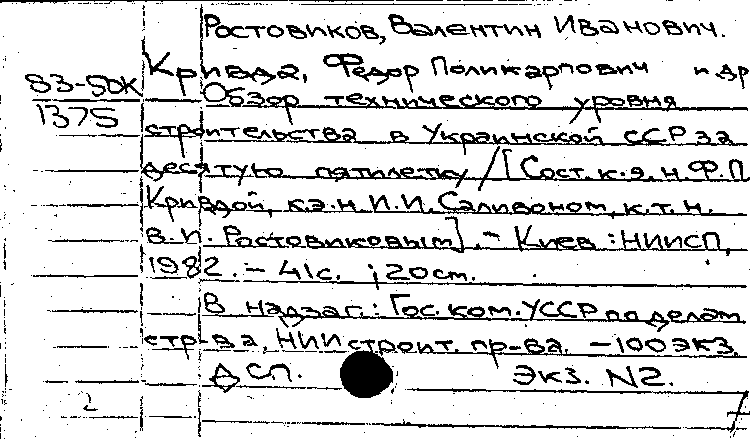 Ростовиков, Валентин Иванович.
Кривда, Федор Поликарпович и др
83-5ДК
1375
Обзор технического уровня
строительства в Украинской ССР за
десятую пятилетку / [Сост. к.э.н. Ф.П.
Кривдой, к.э.н. И.И. Саливоном, к.т.н.
В.И. Ростовиковым]. - Киев : НИИСП,
1982. - 41с. ; 20см.
В надзаг.: Гос. ком. УССР по делам
стр-ва, НИИ строит. пр-ва. - 100 экз.
ДСП. Экз. N2.
2